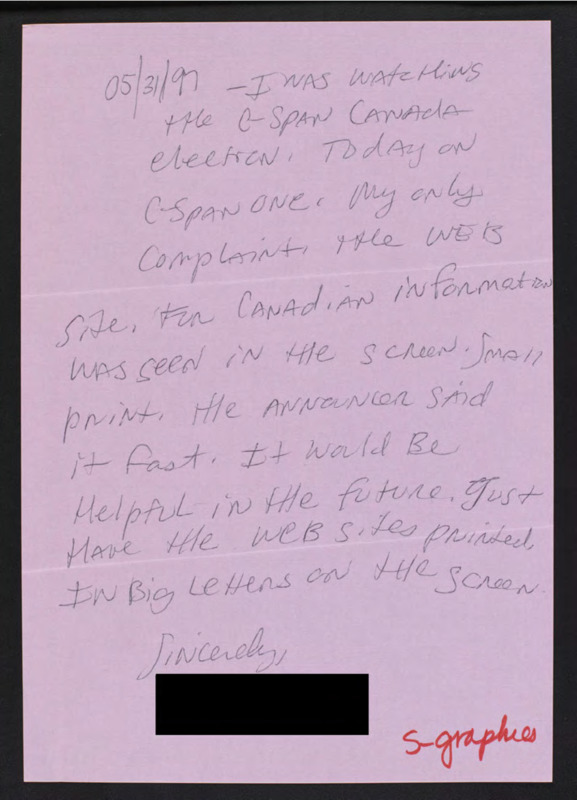 05/31/97 - I was watching
the C-SPAN CANADA
election. Today on
C-SPAN ONE. My only
Complaint. the WEB
Site. For CANADIAN information
was seen in the screen. Small
print. the ANNOUNCER Said
it fast. It would Be
Helpful in the future. Just
Have the WEB sites printed
In Big Letters on the screen.
Sincerely,
S-graphics